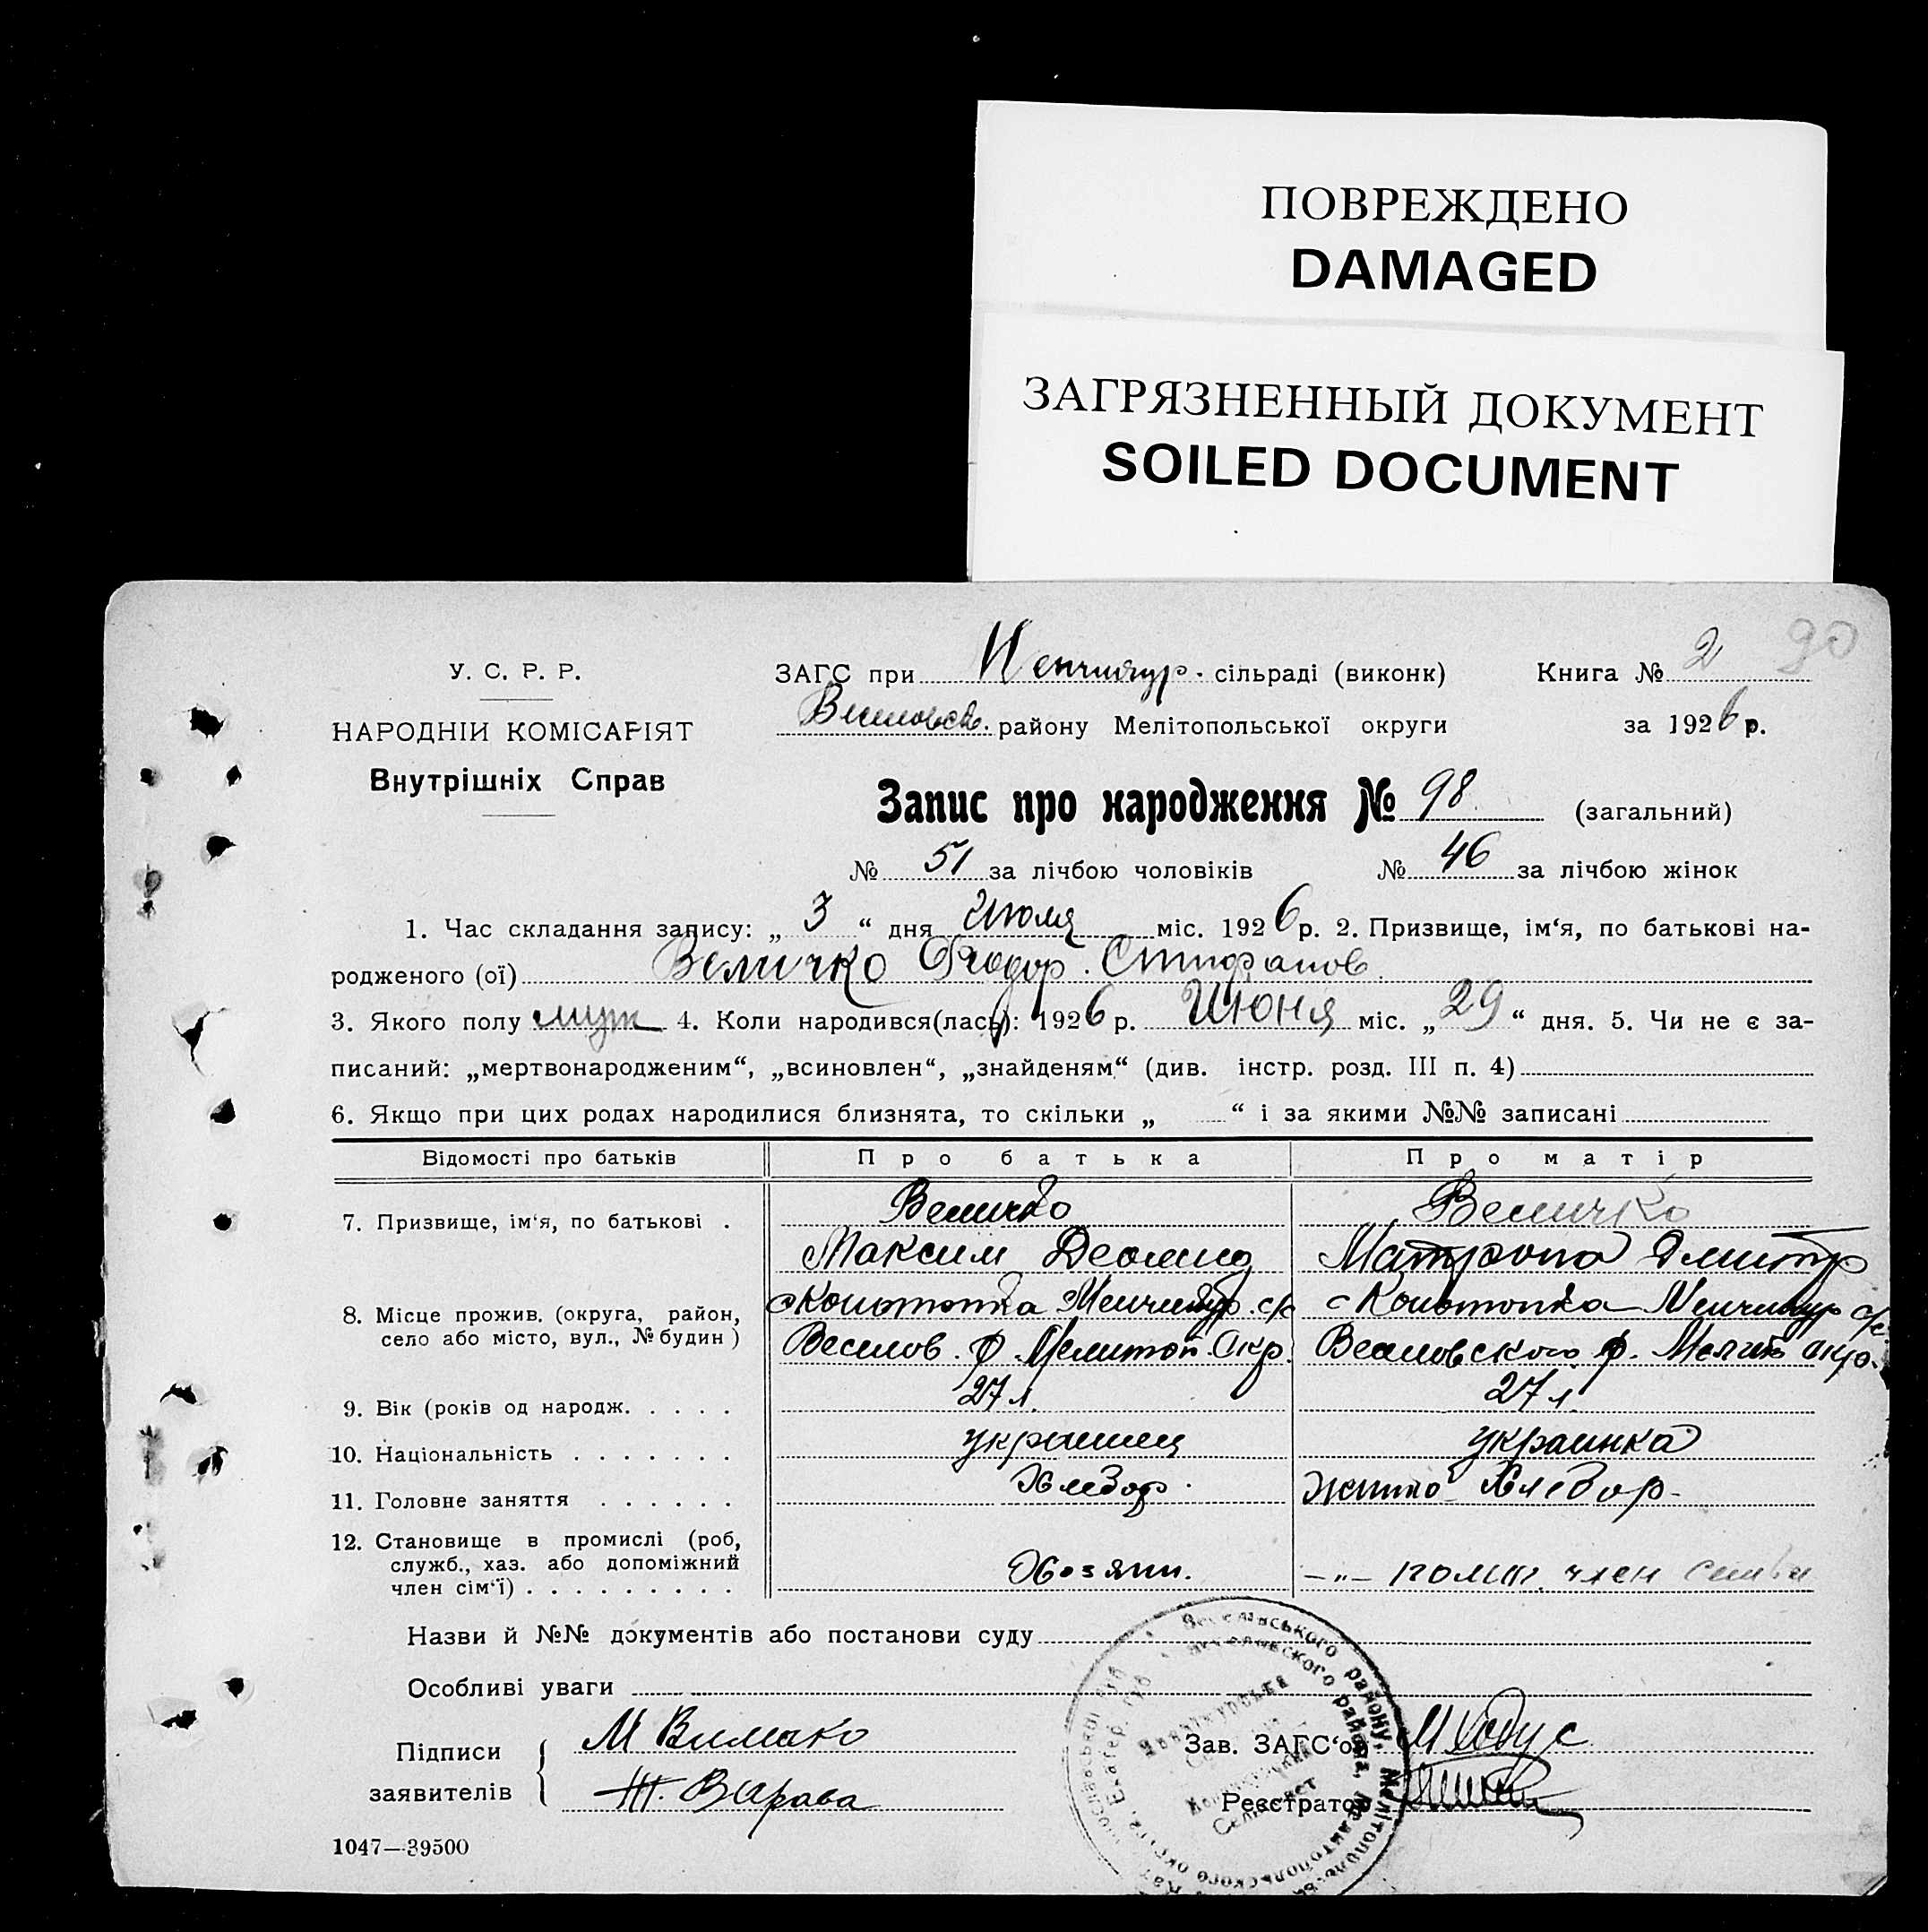 ПОВРЕЖДЕНО
DAMAGED
ЗАГРЯЗНЕННЫЙ ДОКУМЕНТ
SOILED DOCUMENT
90
У. С. Р. Р.
НАРОДНІЙ КОМІСАРІЯТ
Внутрішніх Справ
ЗАГС при сільраді (виконк) Книга № 2
району Мелітопольської округи за 1926 р.
Запис про народження № 98 (загальний)
№ 51 за лічбою чоловіків № 46 за лічбою жінок
1. Час складання запису: „ 3 “ дня Июля міс. 1926 р. 2. Призвище, ім‘я, по батькові на-
родженого (ої) Величко Федор.
3. Якого полу муж 4. Коли народився(лась): 1926 р. Июня міс. „ 29 “ дня. 5. Чи не є за-
писаний: „мертвонародженим“, „всиновлен“, „знайденям“ (див. інстр. розд. III п. 4)
6. Якщо при цих родах народилися близнята, то скільки „ “ і за якими №№ записані
Відомості про батьків Про батька Про матір
7. Призвище, ім‘я, по батькові . Величко Величко
Максим Матрона Дмитр
8. Місце прожив. (округа, район, село або місто, вул., № будин) с Конотопка Менчикур. с/с с Конотопка Менчикур с/с
Веселов. р. Мелитоп. Окр. Веселовского р. Окр.
9. Вік (років од народж. . . . . 27 л. 27 л.
10. Національність . . . . . . . украинец украинка
11. Головне заняття . . . . . . Хлебор. Хлебор-
12. Становище в промислі (роб, служб., хаз. або допоміжний член сім‘ї) . . . . . . . . . Хозяин. -„- член семьи
Назви й №№ документів або постанови суду
Особливі уваги
Підписи заявителів
М
Варава
Зав. ЗАГС‘ом
Реєстратор
Веселівського району, Мелітопольсь
1047—39500